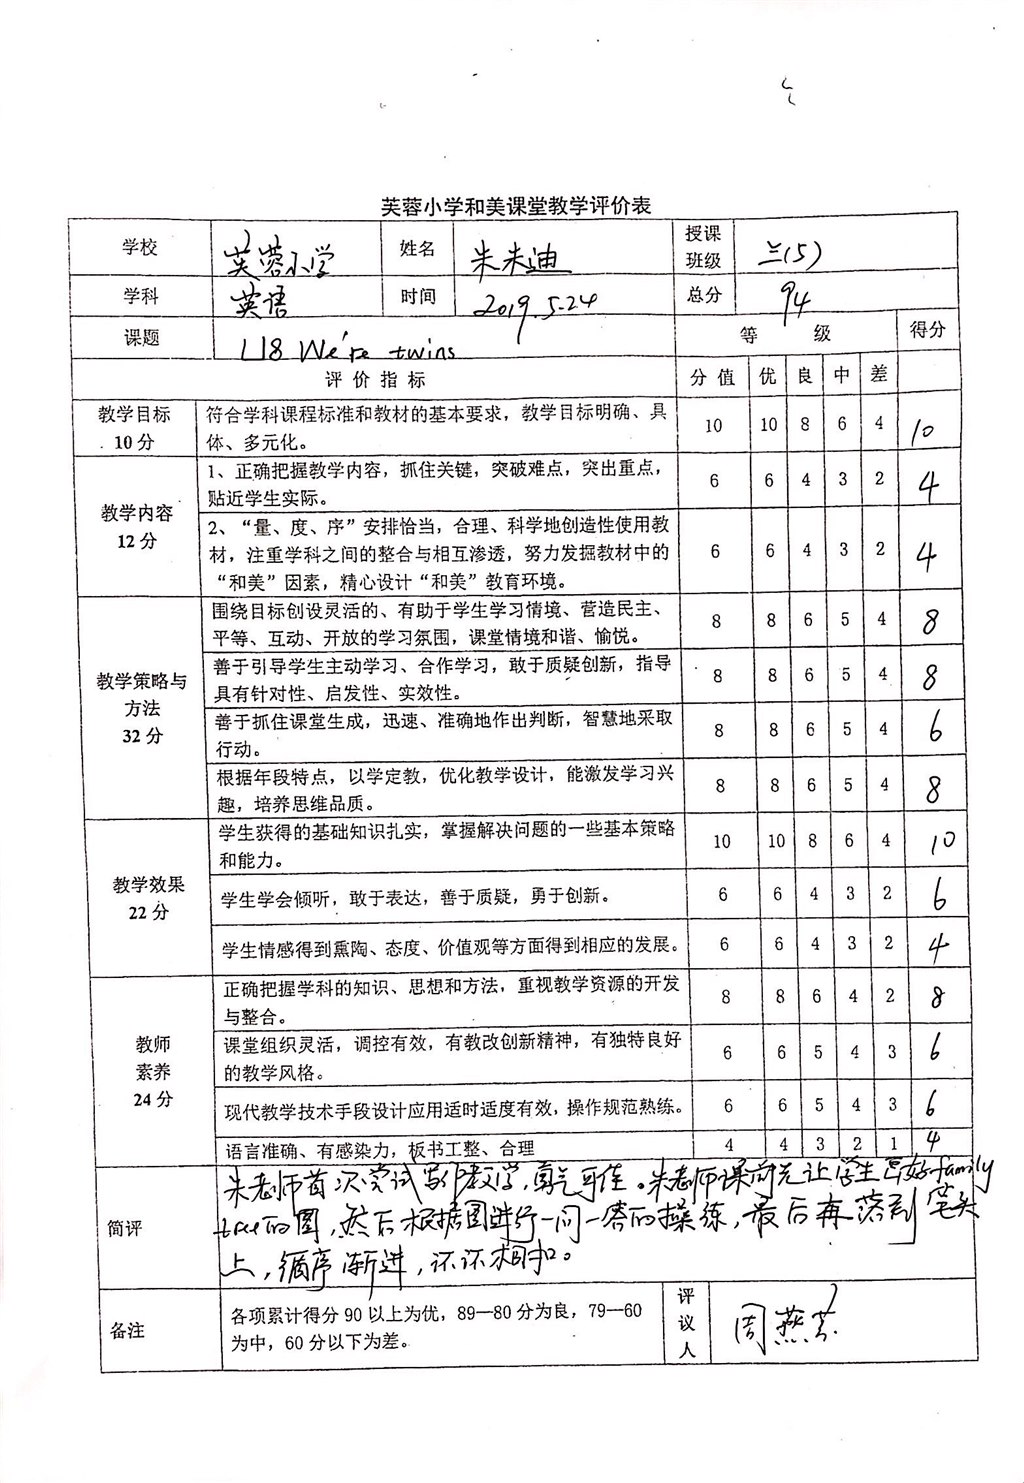 芙蓉小学和美课堂教学评价表
学校 芙蓉小学 姓名 朱未迪 授课班级 三(5)
学科 英语 时间 2019.5.24 总分 94
课题 L18 We're twins 等 级 得分
评价指标 分值 优 良 中 差
教学目标 10分 符合学科课程标准和教材的基本要求，教学目标明确、具 10 10 8 6 4 10
体、多元化。
教学内容 12分 1、正确把握教学内容，抓住关键，突破难点，突出重点， 6 6 4 3 2 4
贴近学生实际。
2、“量、度、序”安排恰当，合理、科学地创造性使用教
材，注重学科之间的整合与相互渗透，努力发掘教材中的 6 6 4 3 2 4
“和美”因素，精心设计“和美”教育环境。
教学策略与方法 32分 围绕目标创设灵活的、有助于学生学习情境、营造民主、 8 8 6 5 4 8
平等、互动、开放的学习氛围，课堂情境和谐、愉悦。
善于引导学生主动学习、合作学习，敢于质疑创新，指导 8 8 6 5 4 8
具有针对性、启发性、实效性。
善于抓住课堂生成，迅速、准确地作出判断，智慧地采取 8 8 6 5 4 6
行动。
根据年段特点，以学定教，优化教学设计，能激发学习兴 8 8 6 5 4 8
趣，培养思维品质。
教学效果 22分 学生获得的基础知识扎实，掌握解决问题的一些基本策略 10 10 8 6 4 10
和能力。
学生学会倾听，敢于表达，善于质疑，勇于创新。 6 6 4 3 2 6
学生情感得到熏陶、态度、价值观等方面得到相应的发展。 6 6 4 3 2 4
教师素养 24分 正确把握学科的知识、思想和方法，重视教学资源的开发 8 8 6 4 2 8
与整合。
课堂组织灵活，调控有效，有教改创新精神，有独特良好 6 6 5 4 3 6
的教学风格。
现代教学技术手段设计应用适时适度有效，操作规范熟练。 6 6 5 4 3 6
语言准确、有感染力，板书工整、合理 4 4 3 2 1 4
简评 朱老师首次尝试写作教学，勇气可佳。朱老师课前先让学生画好family
tree的图，然后根据图进行一问一答的操练，最后再落到笔头
上，循序渐进，环环相扣。
备注 各项累计得分90以上为优，89—80分为良，79—60
为中，60分以下为差。
评议人 周燕芬